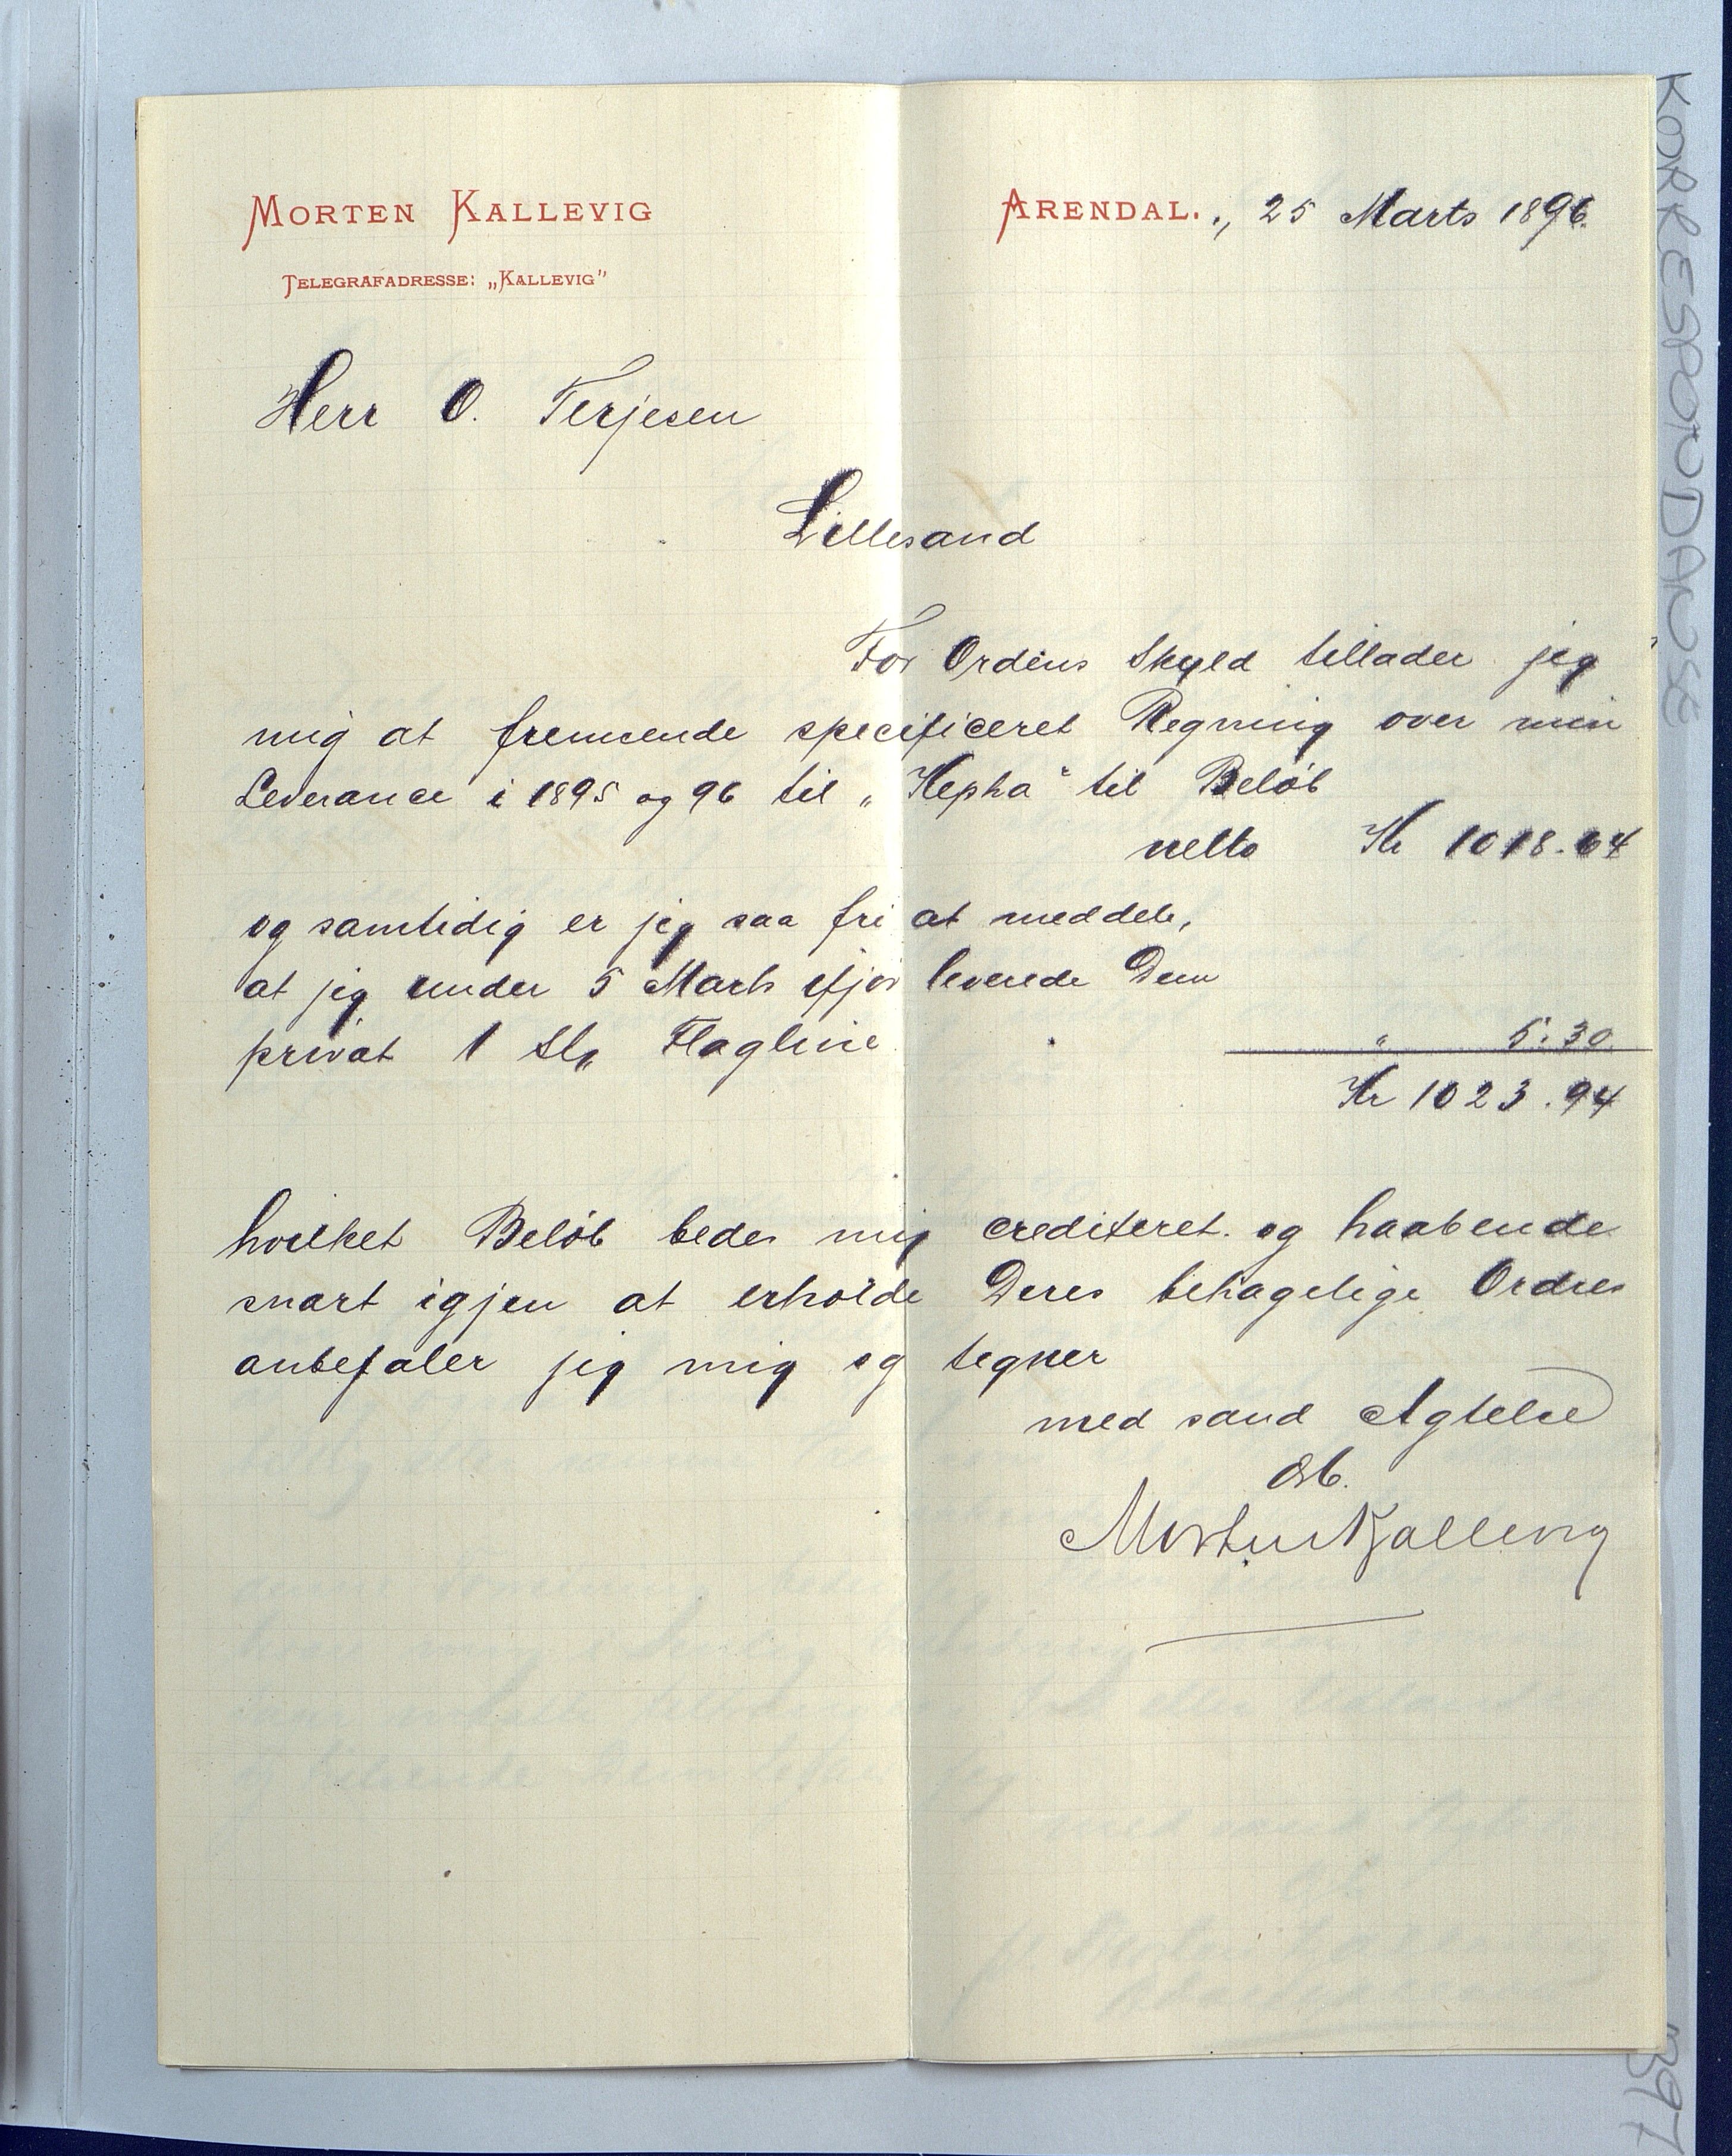 MORTEN KALLEVIG
TELEGRAFADRESSE: „KALLEVIG"
ARENDAL., 25 Marts 1896.
Herr O. Terjesen
Lillesand
For Ordens Skyld tillader jeg
mig at fremsende specificeret Regning over min
Leverance i 1895 og 96 til „Hepha" til Beløb
netto Kr 1018.64
og samtidig er jeg saa fri at meddele,
at jeg under 5 Marts ifjor leverede Dem
privat 1 Flagline " 5.30
Kr 1023.94
hvilket Beløb bedes mig crediteret. og haabende
snart igjen at erholde Deres behagelige Ordres
anbefaler jeg mig og tegner
med sand Agtelse
Morten Kallevig
KORRESPONDANSE